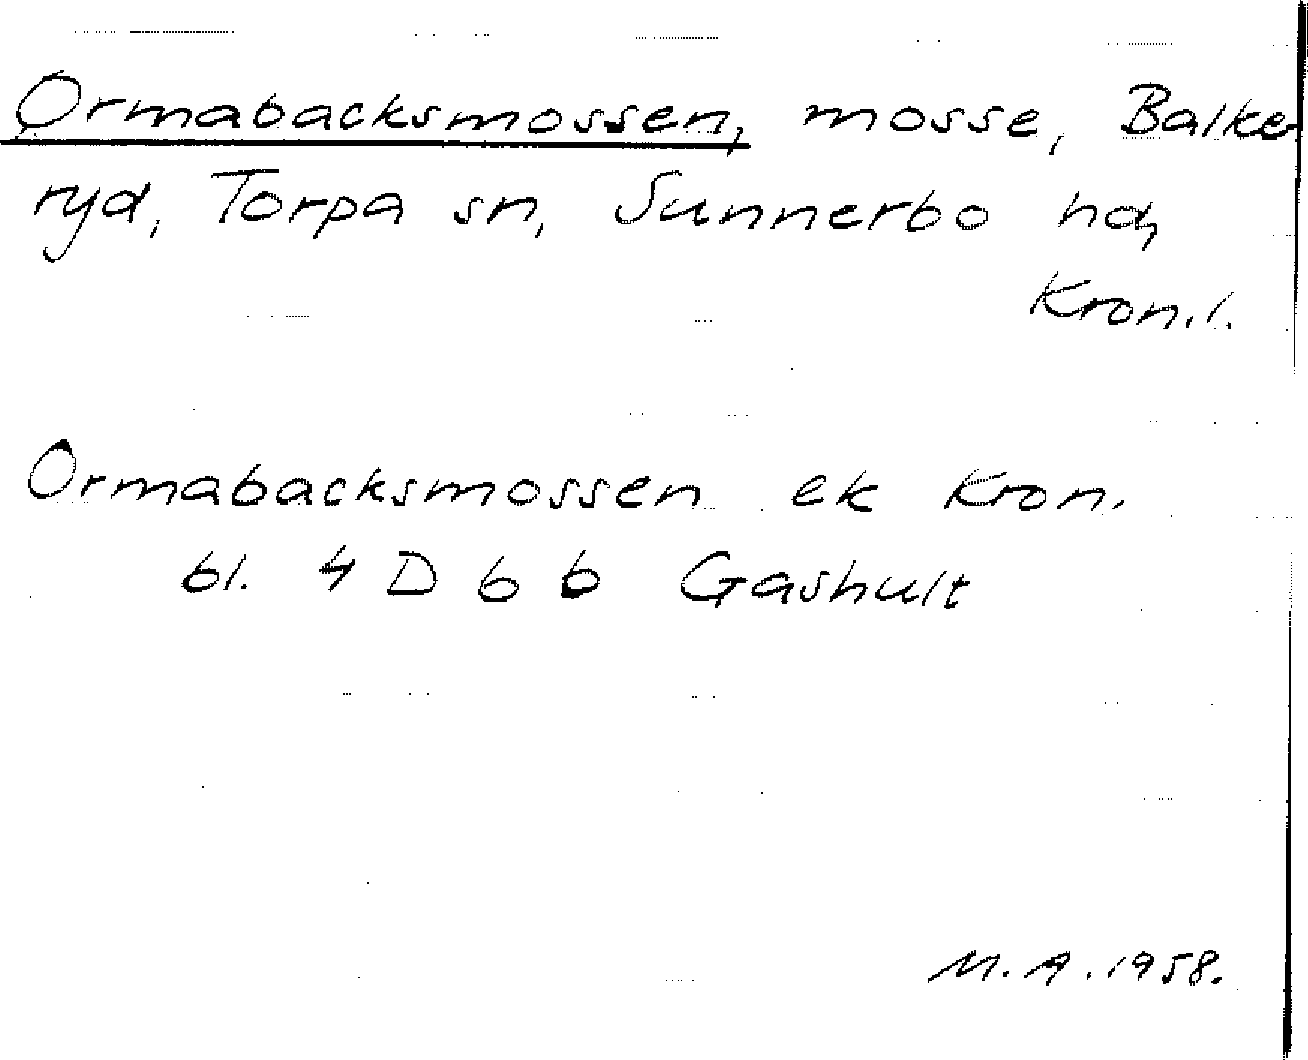 Ormabacksmossen, mosse, Balke-
ryd, Torpa sn, Sunnerbo hd,
Kron.l.
Ormabacksmossen ek Kron.
bl. 4 D 6 b Gashult
M.A. 1958.